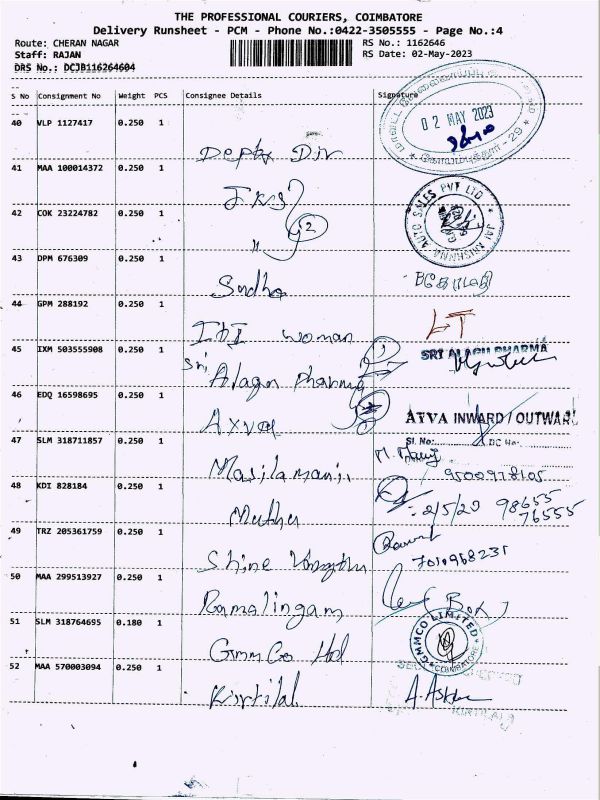 THE PROFESSIONAL COURIERS, COIMBATORE
Delivery Runsheet - PCM - Phone No.:0422-3505555 - Page No.:4
Route: CHERAN NAGAR RS No.: 1162646
Staff: RAJAN RS Date: 02-May-2023
DRS No.: DCJB116264604
S No Consignment No Weight PCS Consignee Details Signature
02 MAY 2023
40 VLP 1127417 0.250 1
Depty Dir
41 MAA 100014372 0.250 1
JKS
JAI KRISHNNA AUTO SALES PVT LTD
42 COK 23224782 0.250 1
2
"
43 DPM 676309 0.250 1
Sudha
44 GPM 288192 0.250 1
woman
45 IXM 503555908 0.250 1
SRI ALAGU PHARMA
Sri Alagu Pharma
46 EDQ 16598695 0.250 1
INWARD / OUTWARD
47 SLM 318711857 0.250 1
Sl. No: DC No:
Masilamani
9500978105
48 KDI 828184 0.250 1
Muthu
98655
76555
49 TRZ 205361759 0.250 1
Shine
7010968231
50 MAA 299513927 0.250 1
Ramalingam
(Box)
51 SLM 318764695 0.180 1
GMMCO LIMITED
COIMBATORE
Gmm Co ltd
52 MAA 570003094 0.250 1
Kirtilal